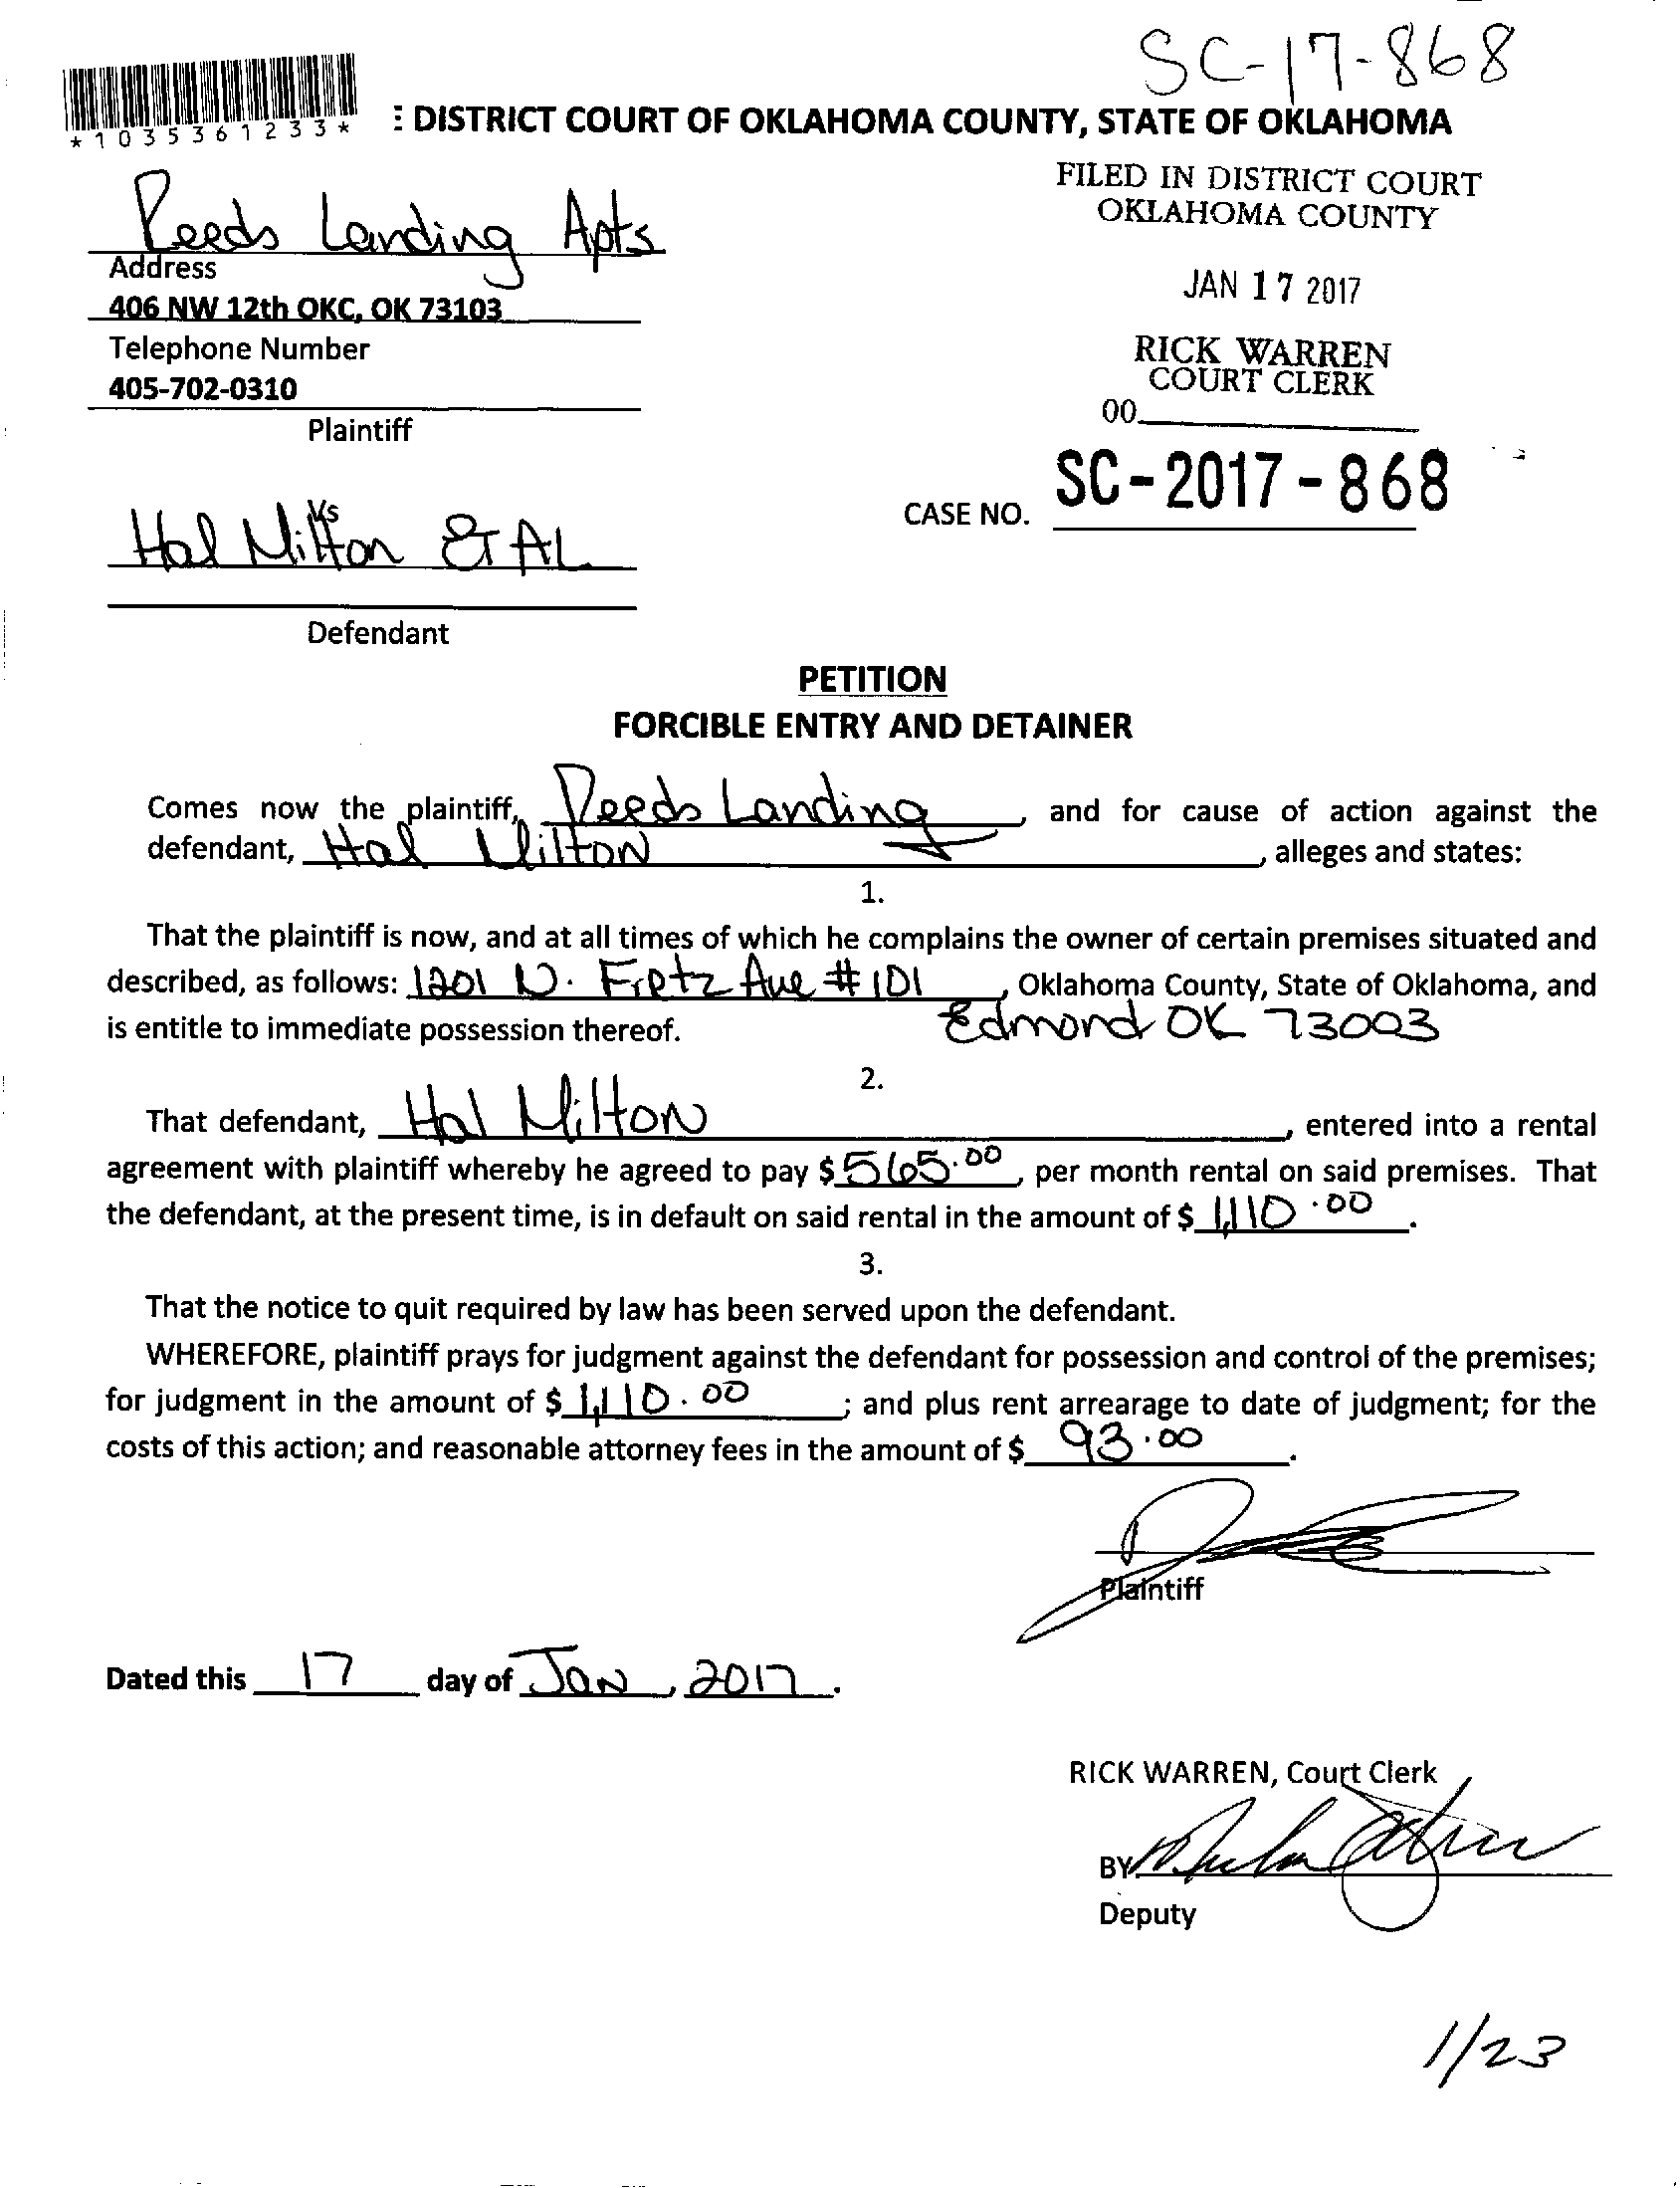 SC-17-868
*1035361233*
: DISTRICT COURT OF OKLAHOMA COUNTY, STATE OF OKLAHOMA
FILED IN DISTRICT COURT
OKLAHOMA COUNTY
JAN 17 2017
RICK WARREN
COURT CLERK
00
Reeds Landing Apts
Address
406 NW 12th OKC, OK 73103
Telephone Number
405-702-0310
Plaintiff
CASE NO. SC-2017-868
Vs
Hal Milton ET AL
Defendant
PETITION
FORCIBLE ENTRY AND DETAINER
Comes now the plaintiff, Reeds Landing, and for cause of action against the
defendant, Hal Milton, alleges and states:
1.
That the plaintiff is now, and at all times of which he complains the owner of certain premises situated and
described, as follows: 1201 N. Fretz Ave #101, Oklahoma County, State of Oklahoma, and
is entitle to immediate possession thereof. Edmond OK 73003
2.
That defendant, Hal Milton, entered into a rental
agreement with plaintiff whereby he agreed to pay $565.00, per month rental on said premises. That
the defendant, at the present time, is in default on said rental in the amount of $ 1,110.00.
3.
That the notice to quit required by law has been served upon the defendant.
WHEREFORE, plaintiff prays for judgment against the defendant for possession and control of the premises;
for judgment in the amount of $ 1,110.00; and plus rent arrearage to date of judgment; for the
costs of this action; and reasonable attorney fees in the amount of $ 93.00.
Plaintiff
Dated this 17 day of Jan, 2017.
RICK WARREN, Court Clerk
BY
Deputy
1/23